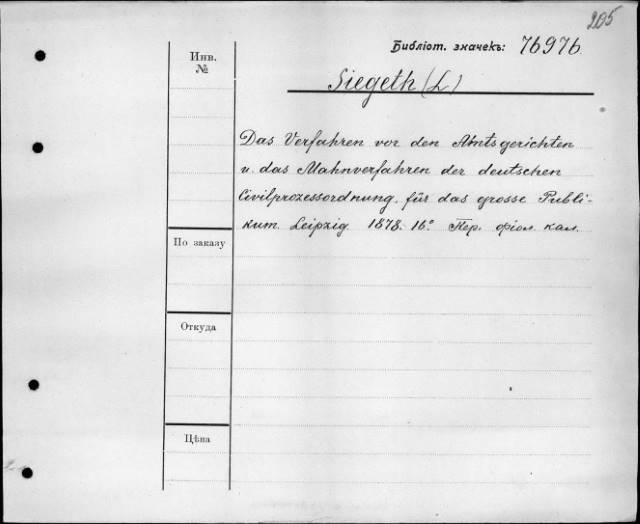 205
Библіот. значекъ: 76976
Инв.
№
Siegeth (L)
Das Verfahren vor den Amtsgerichten
u. das Mahnverfahren der deutschen
Civilprozessordnung. für das grosse Publi-
kum. Leipzig. 1878. 16.° Пер. фіол. кал.
По заказу
Откуда
Цѣна